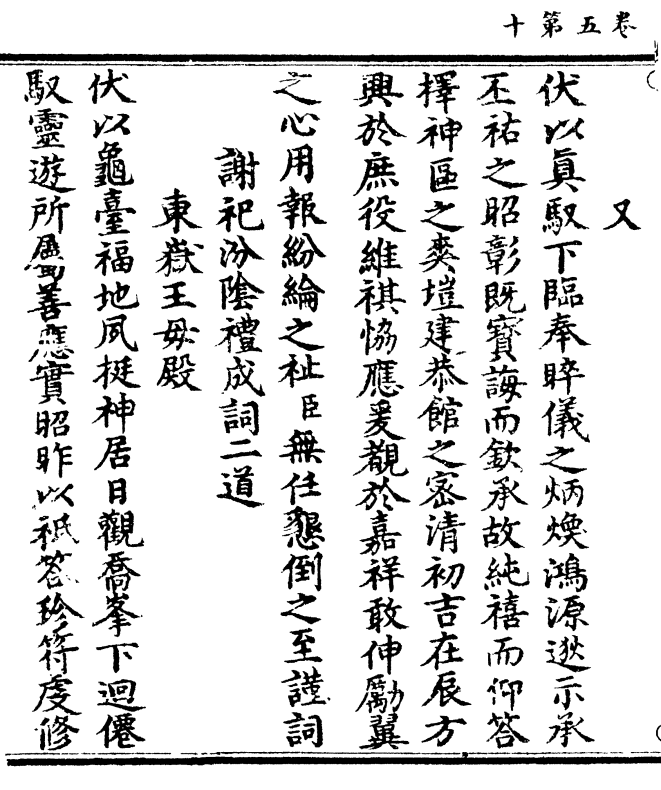 卷五第十
又
伏以真馭下臨奉睟儀之炳煥鴻源逖示承
丕祐之昭彰既寶誨而欽承故純禧而仰答
擇神區之爽塏建恭館之密清初吉在辰方
興於庶役維祺協應爰覩於嘉祥敢伸勵翼
之心用報紛綸之祉臣無任懇倒之至謹詞
謝祀汾陰禮成詞二道
東嶽王母殿
伏以龜臺福地夙挺神居日觀喬峯下迴僊
馭靈遊所屬善應寔昭昨以祗答珍符虔修